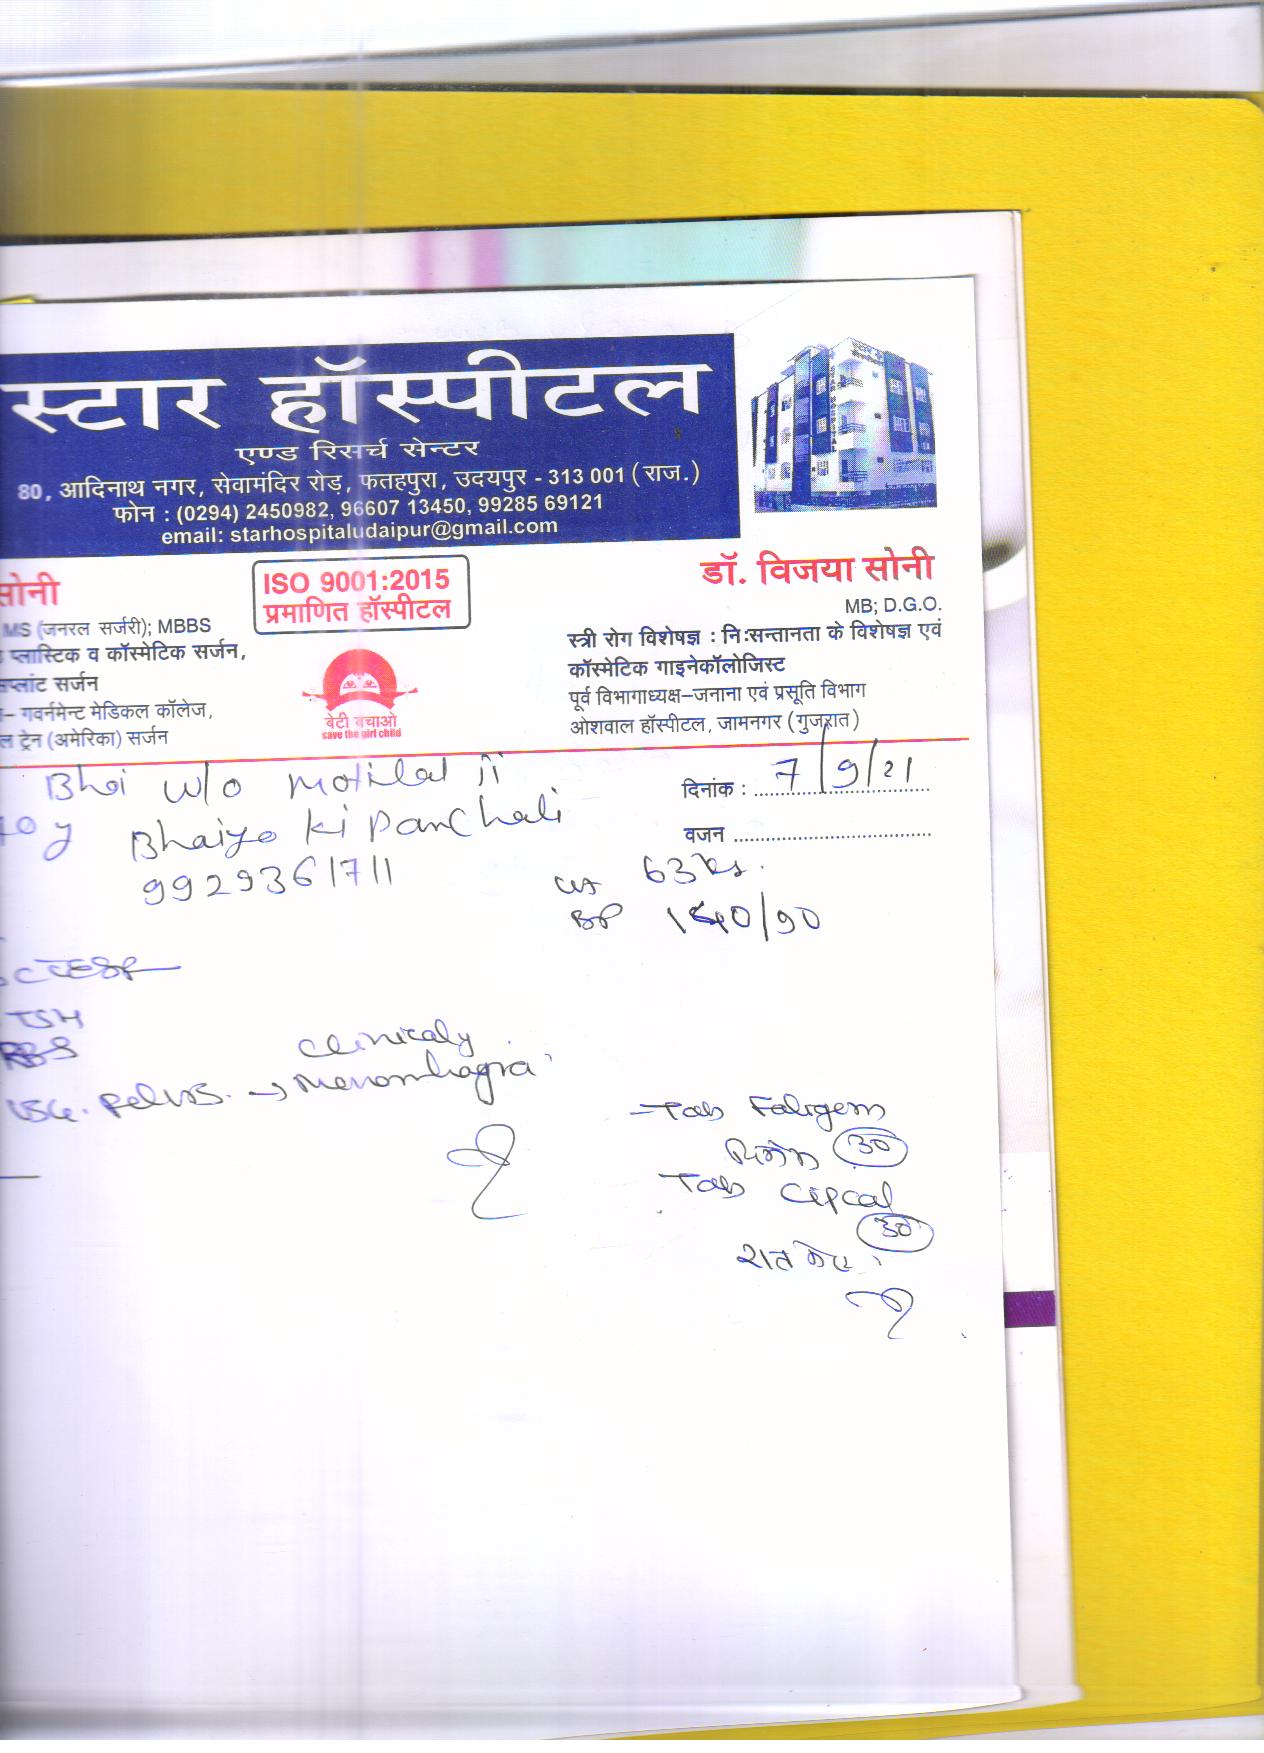 स्टार हॉस्पीटल
एण्ड रिसर्च सेन्टर
80, आदिनाथ नगर, सेवामंदिर रोड़, फतहपुरा, उदयपुर - 313 001 (राज.)
फोन : (0294) 2450982, 96607 13450, 99285 69121
email: starhospitaludaipur@gmail.com
सोनी
MS (जनरल सर्जरी); MBBS
प्लास्टिक व कॉस्मेटिक सर्जन,
सर्जन
गवर्नमेन्ट मेडिकल कॉलेज,
ट्रेन (अमेरिका) सर्जन
ISO 9001:2015
प्रमाणित हॉस्पीटल
बेटी बचाओ
save the girl child
डॉ. विजया सोनी
MB; D.G.O.
स्त्री रोग विशेषज्ञ : निःसन्तानता के विशेषज्ञ एवं
कॉस्मेटिक गाइनेकॉलोजिस्ट
पूर्व विभागाध्यक्ष–जनाना एवं प्रसूति विभाग
ओशवाल हॉस्पीटल, जामनगर (गुजरात)
Bhai w/o Motilal ji
दिनांक : 7/9/21
Bhaiyo ki Pancholi
वजन
9929361711
63 kg.
BP 140/90
TSH
RBS
Clinicaly
USG. Pelvis. → Menorrhagia
Tab Faligem
30
Tab Cipcal
30
रात